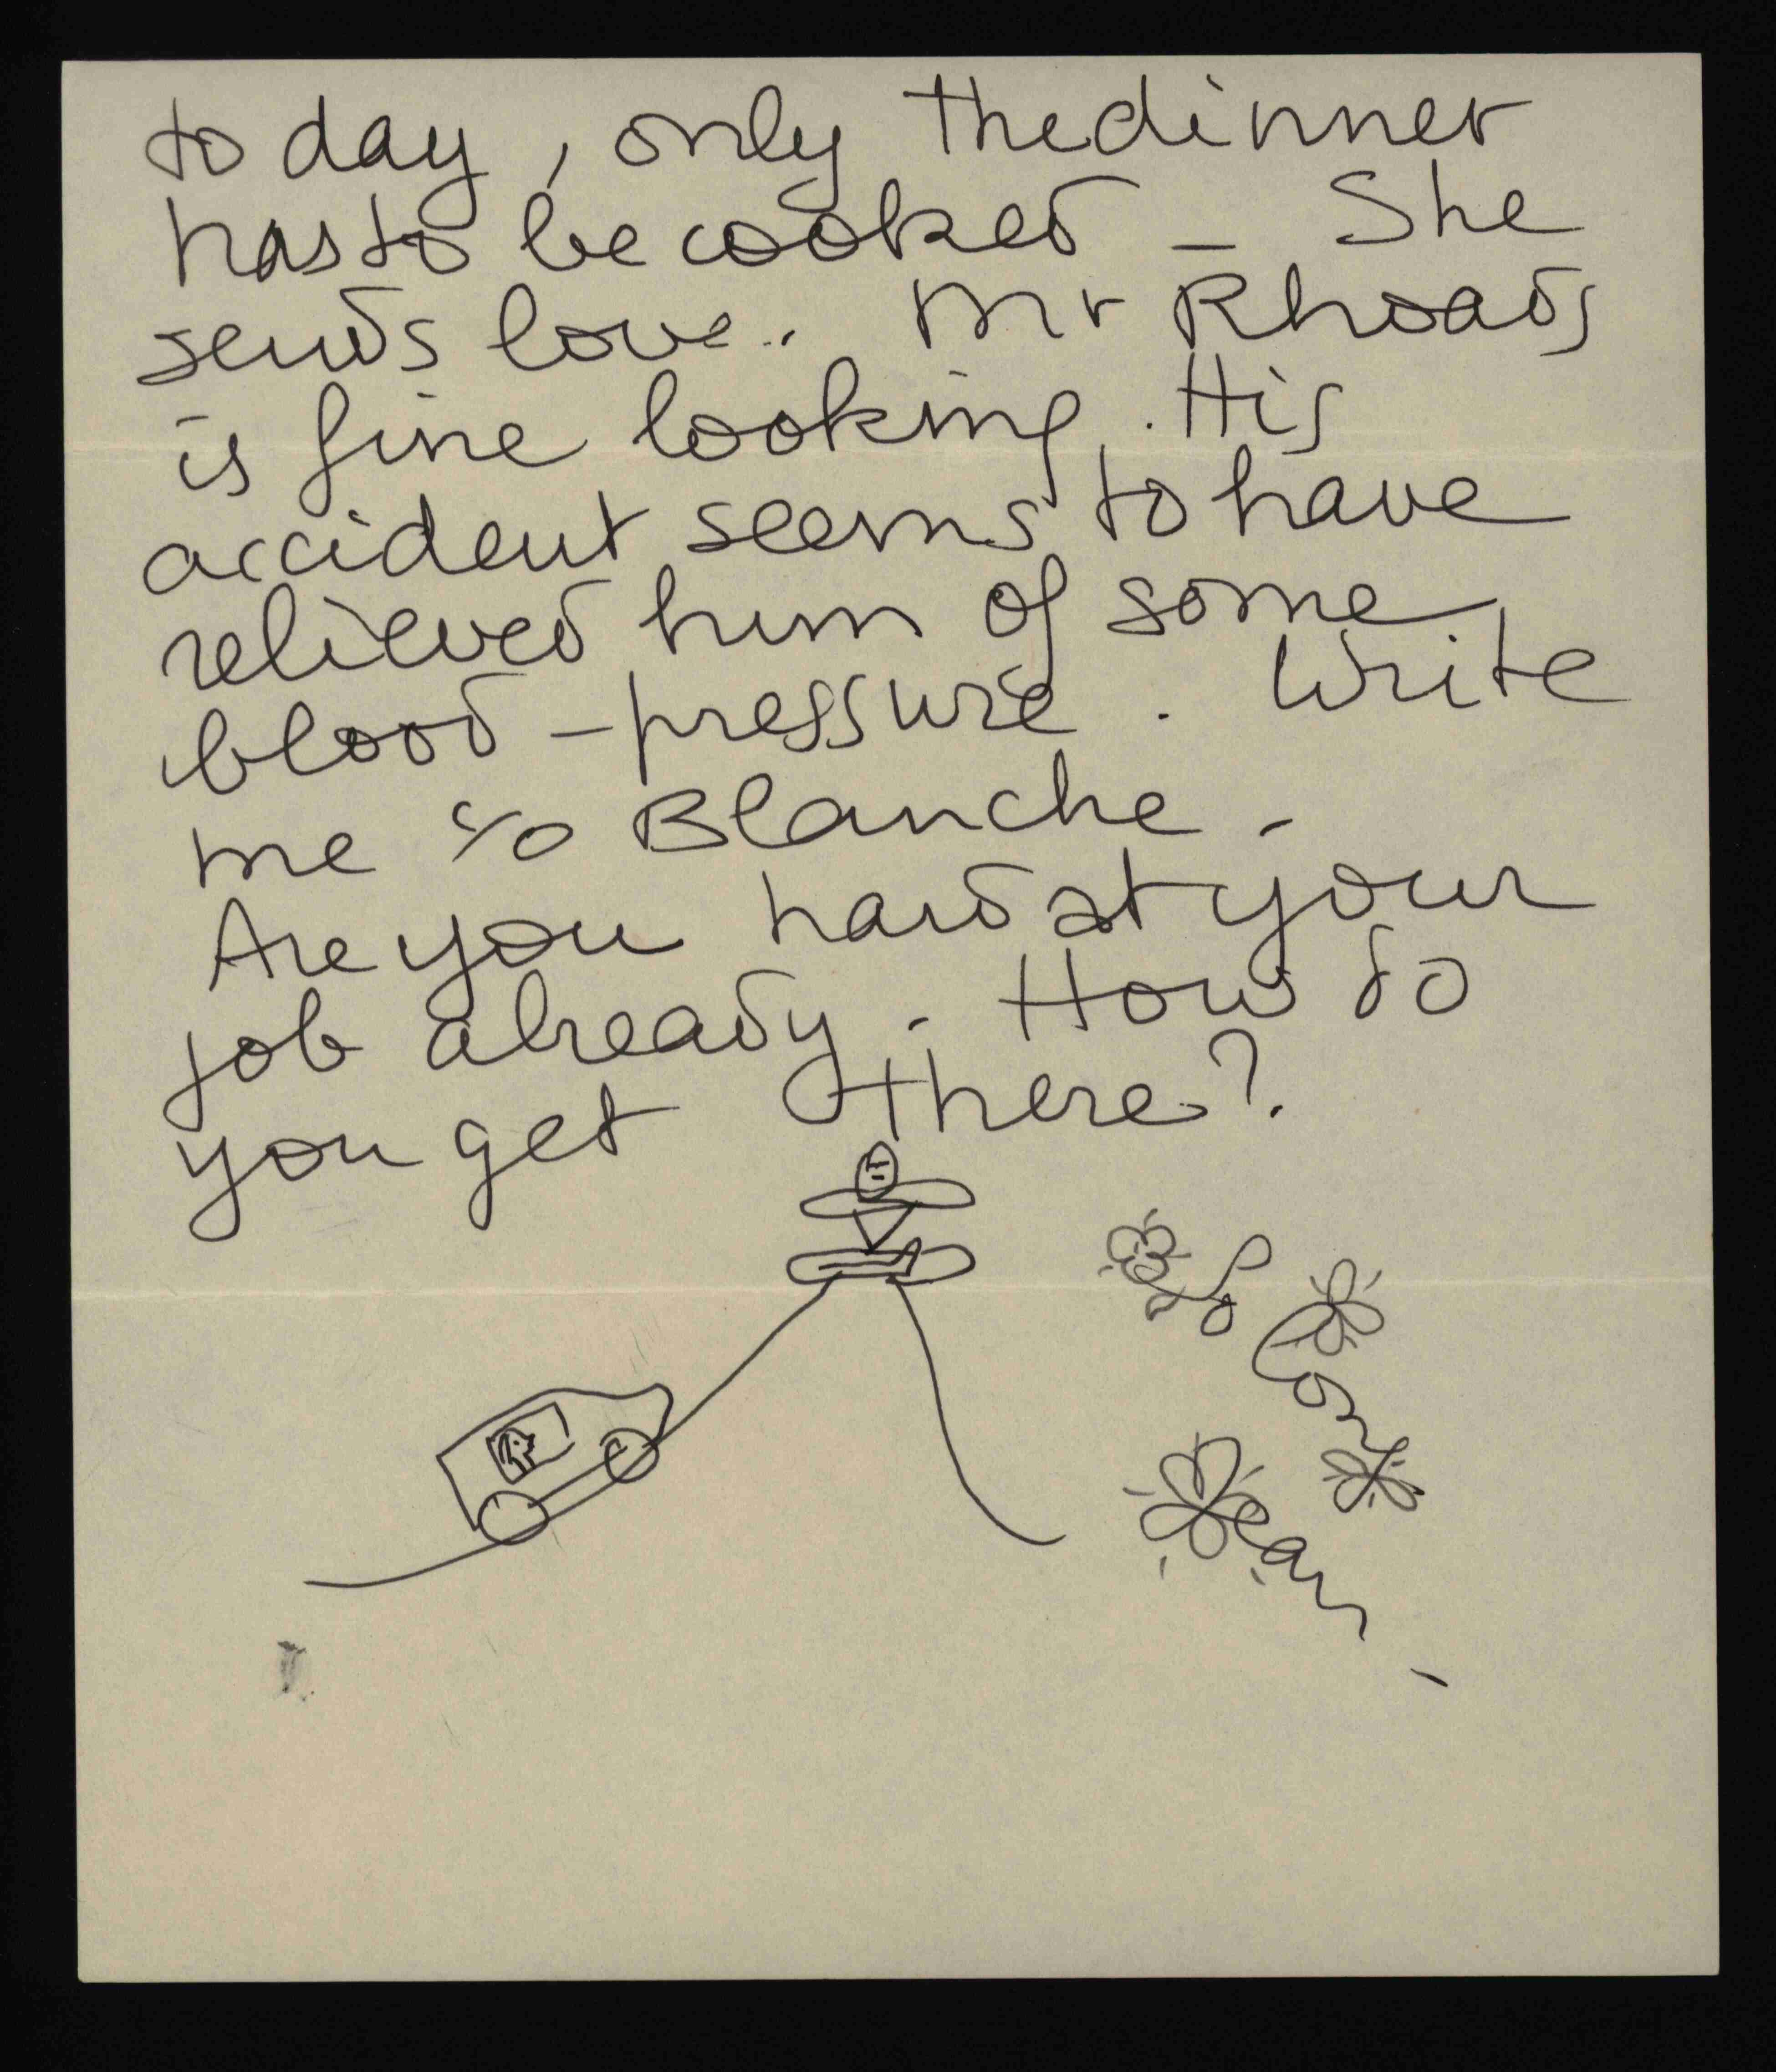 to day, only the dinner
has to be cooked – She
sends love. Mr Rhoads
is fine looking. His
accident seems to have
relieved him of some
blood-pressure. Write
me c/o Blanche.
Are you hard at your
job already. How do
you get there?
So
long
Jean –